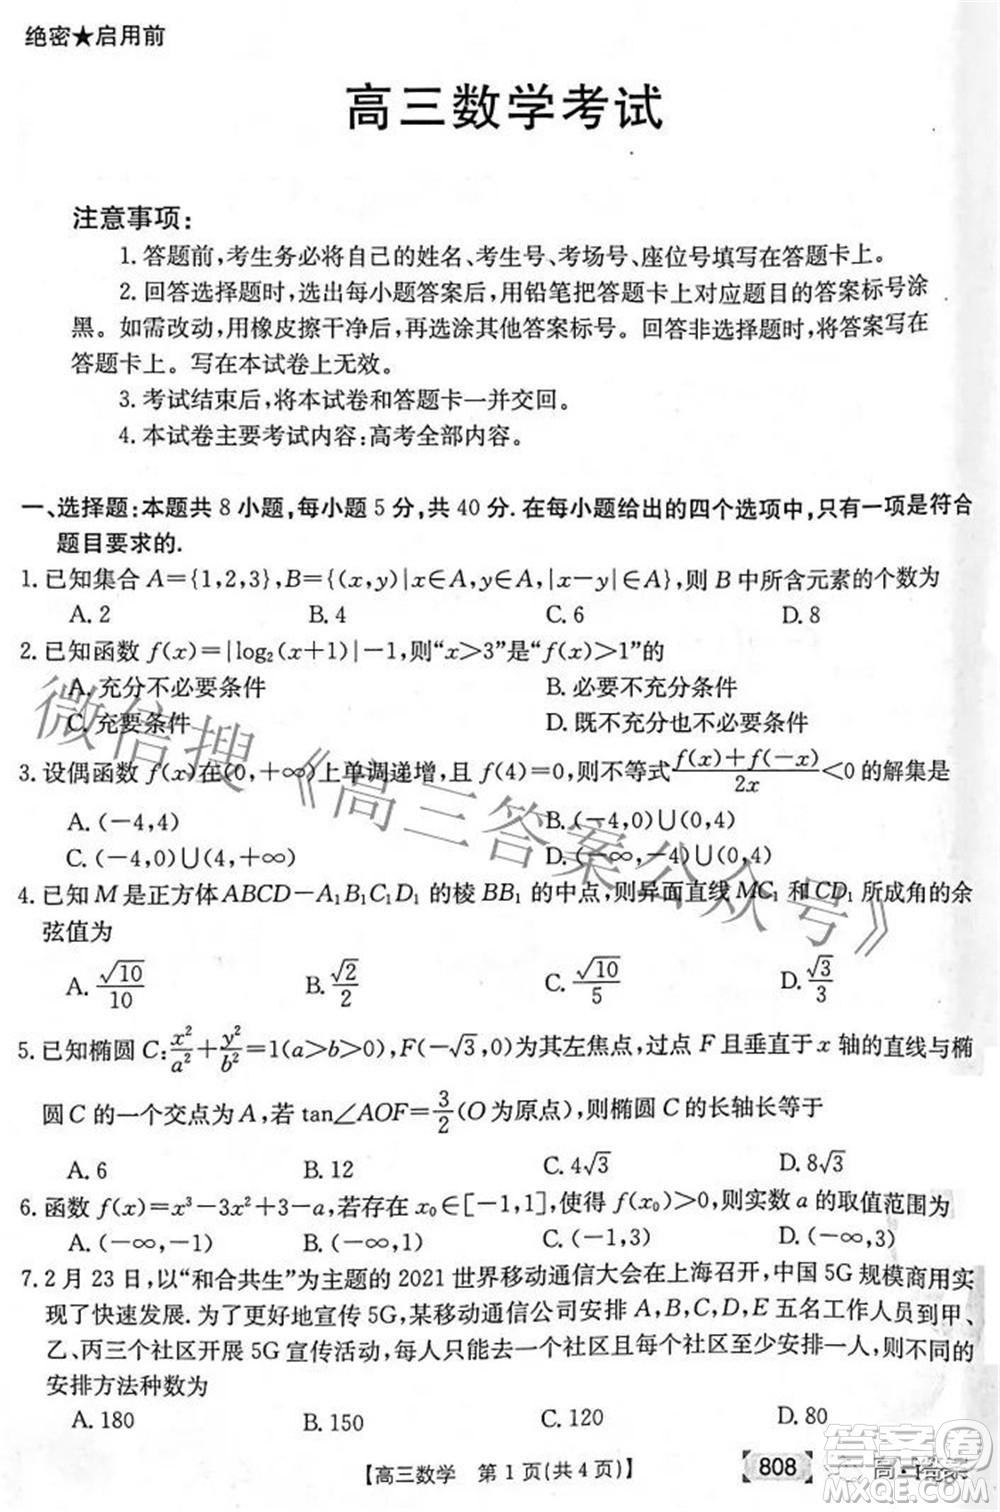 绝密★启用前
高三数学考试
注意事项:
1. 答题前,考生务必将自己的姓名、考生号、考场号、座位号填写在答题卡上。
2. 回答选择题时,选出每小题答案后,用铅笔把答题卡上对应题目的答案标号涂
黑。如需改动,用橡皮擦干净后,再选涂其他答案标号。回答非选择题时,将答案写在
答题卡上。写在本试卷上无效。
3. 考试结束后,将本试卷和答题卡一并交回。
4. 本试卷主要考试内容:高考全部内容。
一、选择题:本题共 8 小题,每小题 5 分,共 40 分. 在每小题给出的四个选项中,只有一项是符合
题目要求的.
1. 已知集合 A={1,2,3},B={(x,y)|x∈A,y∈A,|x-y|∈A},则 B 中所含元素的个数为
A. 2 B. 4 C. 6 D. 8
2. 已知函数 f(x)=|log₂(x+1)|-1,则“x>3”是“f(x)>1”的
A. 充分不必要条件 B. 必要不充分条件
C. 充要条件 D. 既不充分也不必要条件
3. 设偶函数 f(x)在(0,+∞)上单调递增,且 f(4)=0,则不等式 (f(x)+f(-x))/2x <0 的解集是
A. (-4,4) B. (-4,0)∪(0,4)
C. (-4,0)∪(4,+∞) D. (-∞,-4)∪(0,4)
4. 已知 M 是正方体 ABCD-A₁B₁C₁D₁ 的棱 BB₁ 的中点,则异面直线 MC₁ 和 CD₁ 所成角的余
弦值为
A. √10/10 B. √2/2 C. √10/5 D. √3/3
5. 已知椭圆 C: x²/a² + y²/b² =1(a>b>0),F(-√3,0)为其左焦点,过点 F 且垂直于 x 轴的直线与椭
圆 C 的一个交点为 A,若 tan∠AOF= 3/2 (O 为原点),则椭圆 C 的长轴长等于
A. 6 B. 12 C. 4√3 D. 8√3
6. 函数 f(x)=x³-3x²+3-a,若存在 x₀∈[-1,1],使得 f(x₀)>0,则实数 a 的取值范围为
A. (-∞,-1) B. (-∞,1) C. (-1,3) D. (-∞,3)
7. 2 月 23 日,以“和合共生”为主题的 2021 世界移动通信大会在上海召开,中国 5G 规模商用实
现了快速发展. 为了更好地宣传 5G,某移动通信公司安排 A,B,C,D,E 五名工作人员到甲、
乙、丙三个社区开展 5G 宣传活动,每人只能去一个社区且每个社区至少安排一人,则不同的
安排方法种数为
A. 180 B. 150 C. 120 D. 80
【高三数学 第 1 页(共 4 页)】
808
微信搜《高三答案公众号》
答案圈